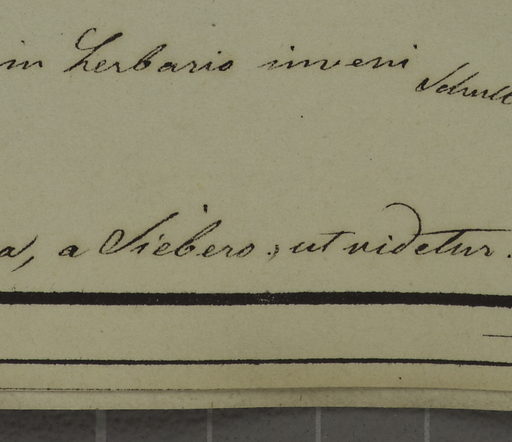 in herbario inveni
a, a Siebero, ut videtur.